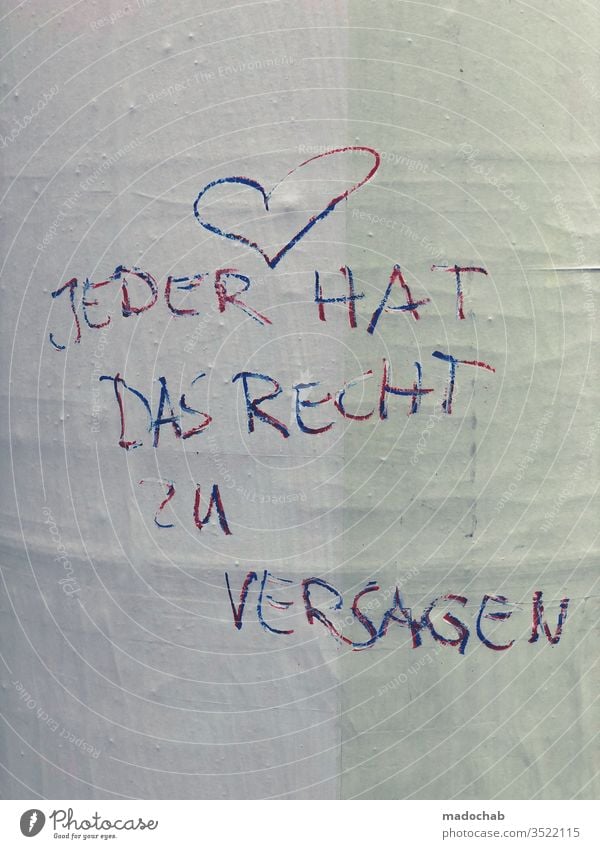 JEDER HAT
DAS RECHT
ZU
VERSAGEN
PHOTOCASE
Good for your eyes.
madochab
© Photocase.com | 3522115